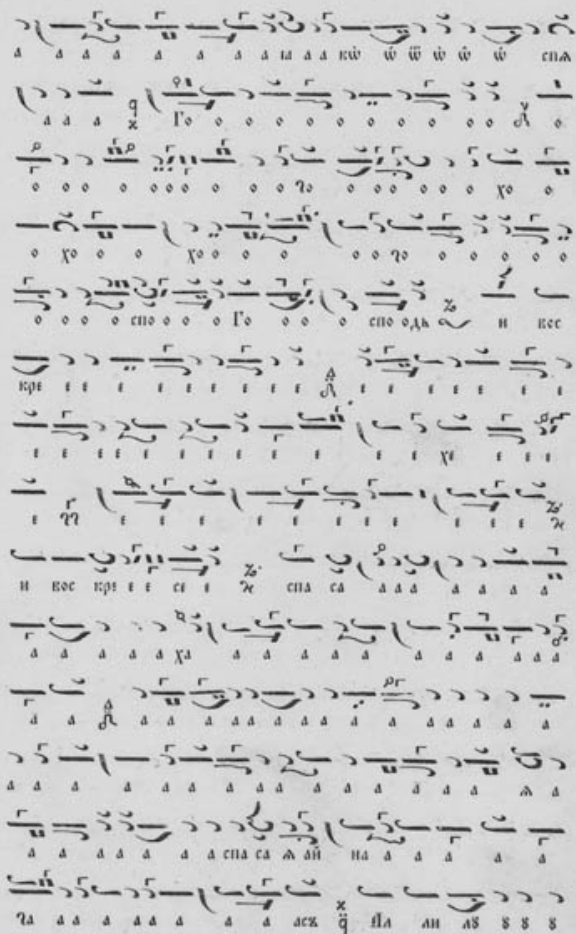 а а а а а а а ꙗ а а кѡ̈ ѡ̈ ѡ̈ ѡ̈ ѡ̈ ѡ̈ спѧ
а а а Го о о о о о о о о о о о
о о о о о о о о о о го о о о о о хо о
о хо о о хо о о о о о го о о о о о о
о о о о спо о о о Го о о о спо одь и вос
кре е е е е е е е е е е е е е е е е
е е е е е е е е е е е е хе е е е е
е е е е е е е е е е е е е
и вос кре е е се е спа са а а а а а а а
а а а а а ха а а а а а а а а а а а
а а а а а а а а а а а а а а а а а
а а а а а а а а а а а а а а а ѧ а
а а а а а а а спа са ѧ ай на а а а а а
га а а а а а а а а асъ Ал ли лꙋ ꙋ ꙋ ꙋ